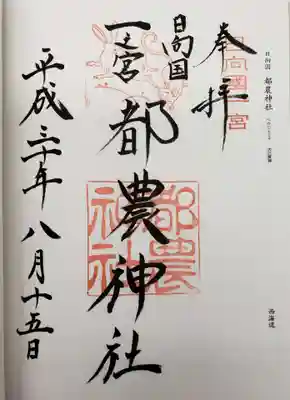 奉拝
日向国
一之宮
都農神社
平成三十年八月十五日
日向國一宮
都農神社
日向国 都農神社
西海道